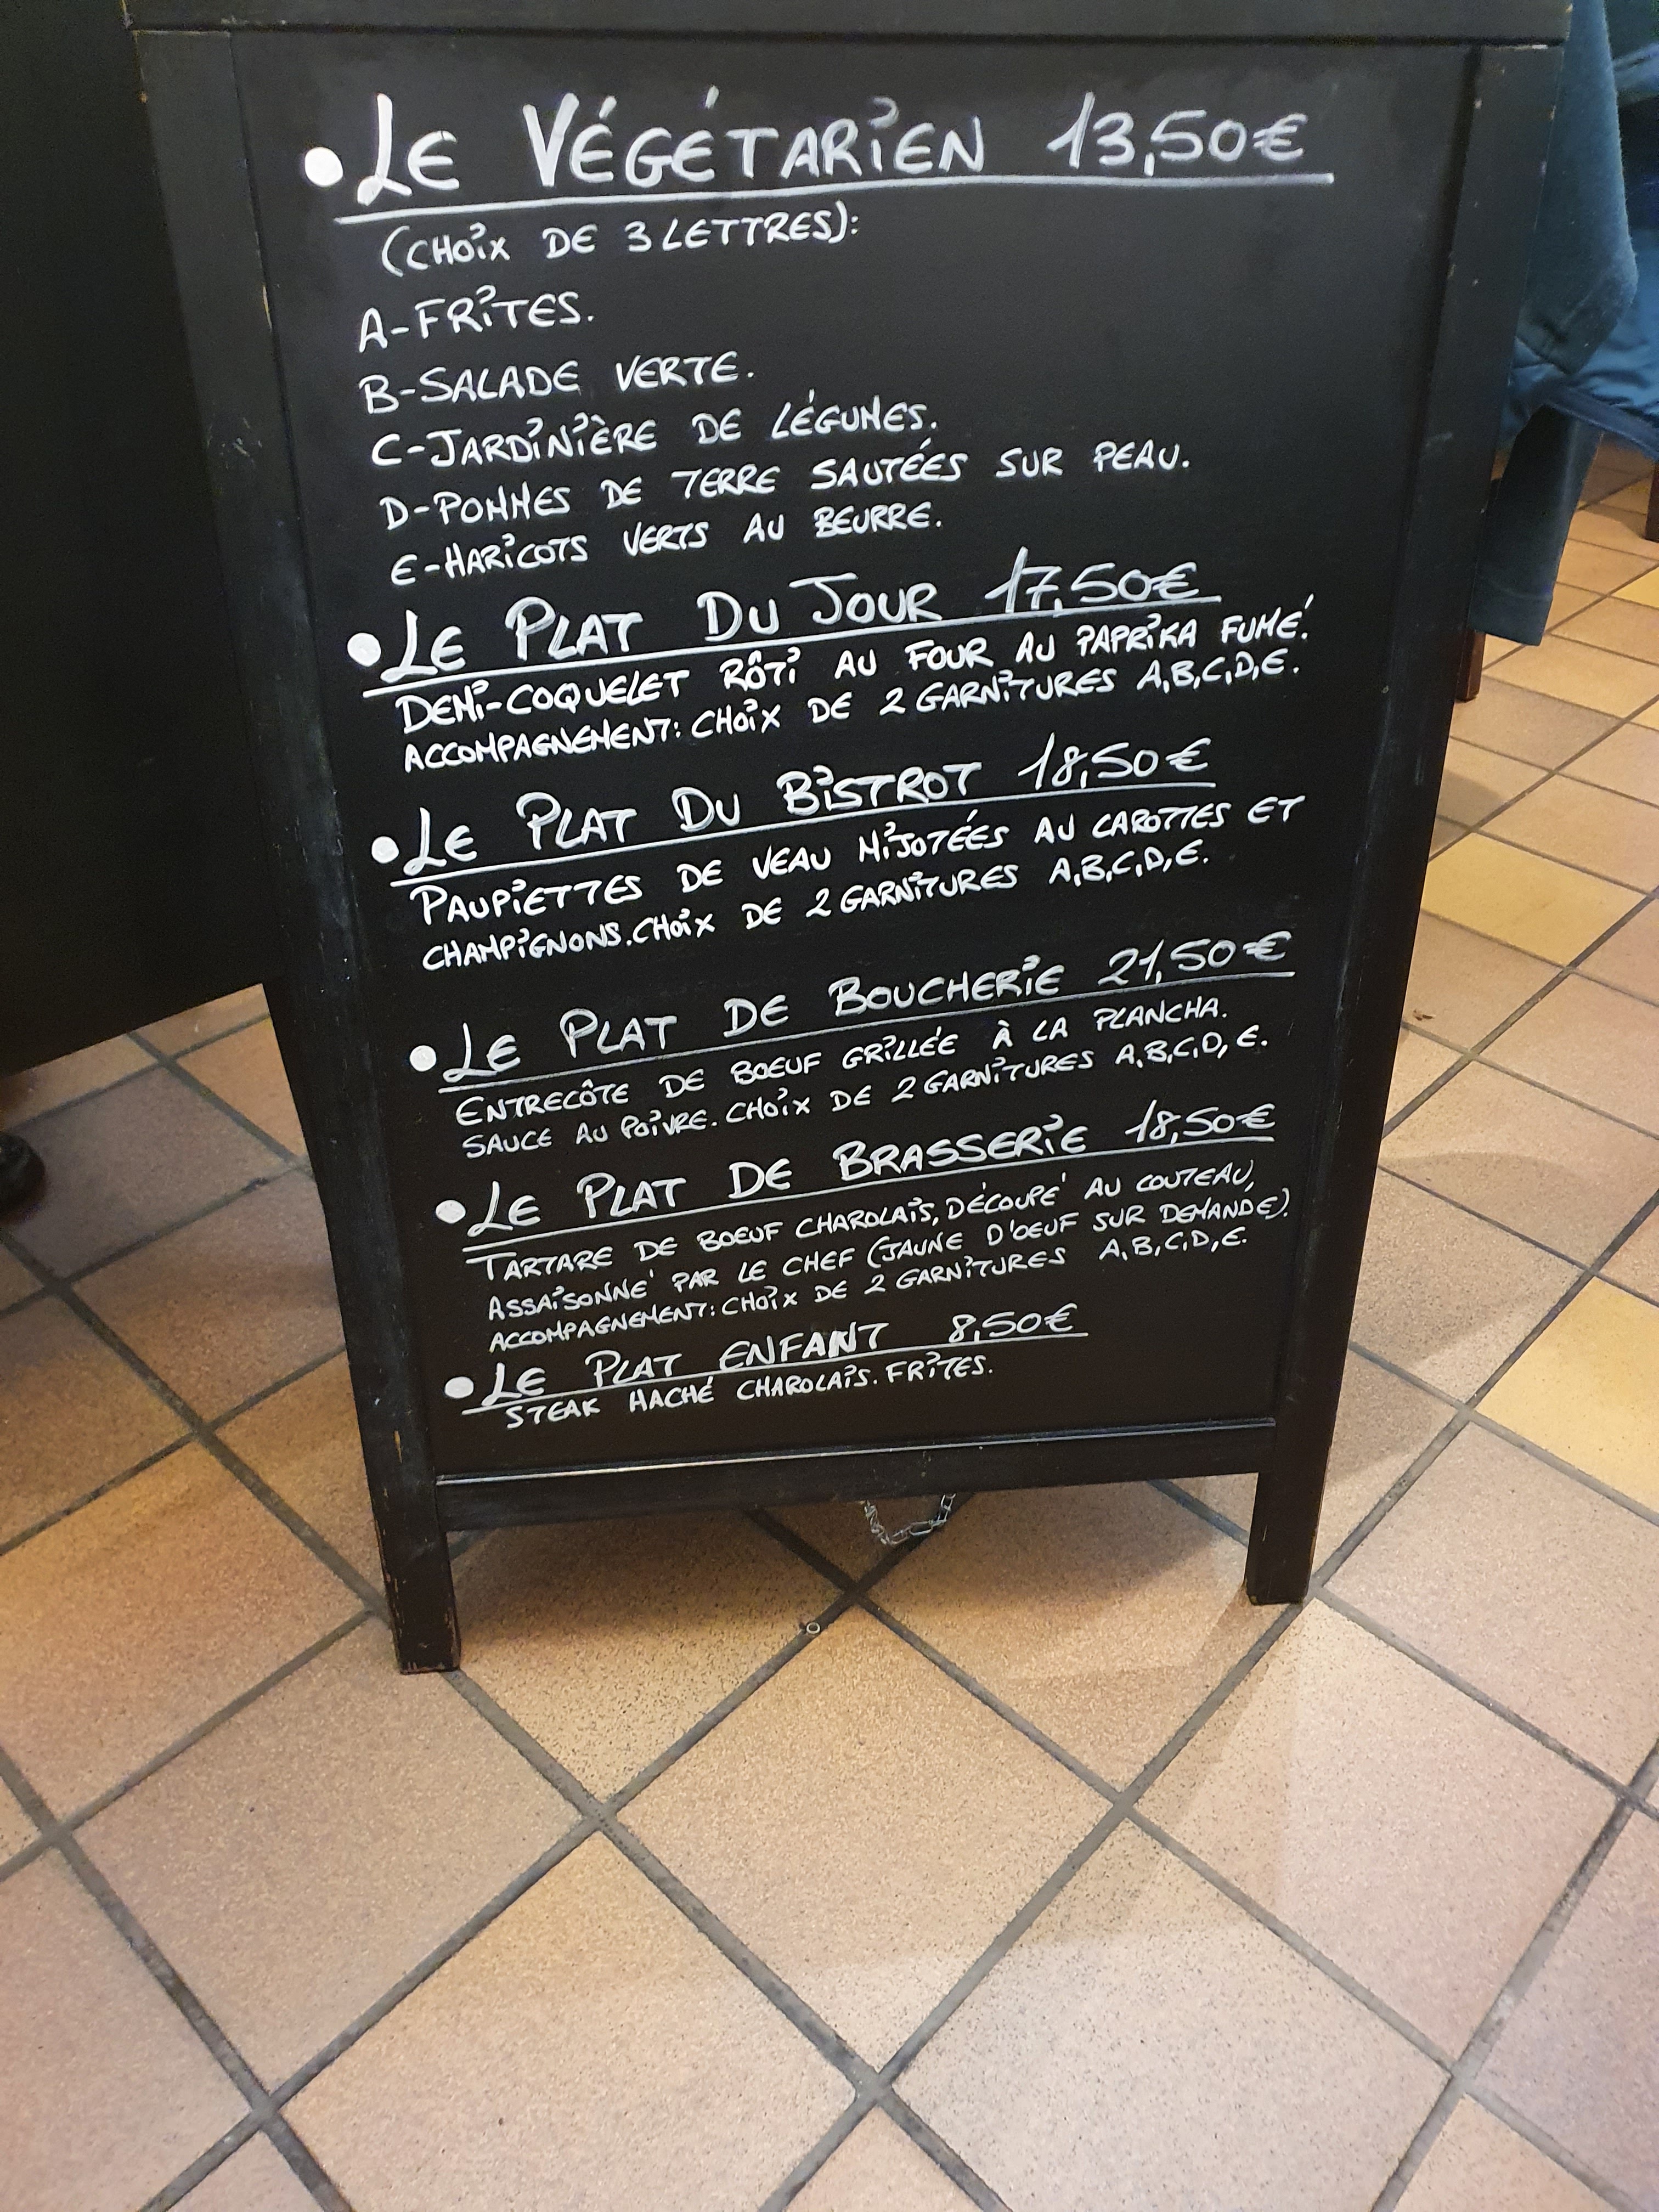 • LE VÉGÉTARIEN 13,50€
(CHOIX DE 3 LETTRES):
A-FRITES.
B-SALADE VERTE.
C-JARDINIÈRE DE LÉGUMES.
D-POMMES DE TERRE SAUTÉES SUR PEAU.
E-HARICOTS VERTS AU BEURRE.
• LE PLAT DU JOUR 17,50€
DEMI-COQUELET RÔTI AU FOUR AU PAPRIKA FUMÉ.
ACCOMPAGNEMENT: CHOIX DE 2 GARNITURES A,B,C,D,E.
• LE PLAT DU BISTROT 18,50€
PAUPIETTES DE VEAU MIJOTÉES AU CAROTTES ET
CHAMPIGNONS. CHOIX DE 2 GARNITURES A,B,C,D,E.
• LE PLAT DE BOUCHERIE 21,50€
ENTRECÔTE DE BOEUF GRILLÉE À LA PLANCHA.
SAUCE AU POIVRE. CHOIX DE 2 GARNITURES A,B,C,D,E.
• LE PLAT DE BRASSERIE 18,50€
TARTARE DE BOEUF CHAROLAIS, DÉCOUPÉ AU COUTEAU,
ASSAISONNÉ PAR LE CHEF (JAUNE D'OEUF SUR DEMANDE).
ACCOMPAGNEMENT: CHOIX DE 2 GARNITURES A,B,C,D,E.
• LE PLAT ENFANT 8,50€
STEAK HACHÉ CHAROLAIS. FRITES.